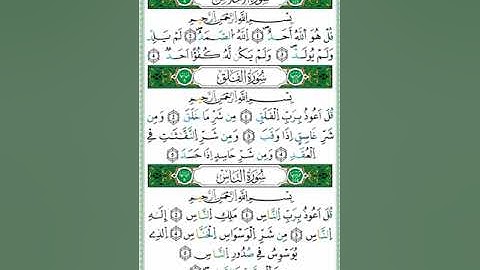 سُورَةُ الْإِخْلَاصِ
بِسْمِ اللَّهِ الرَّحْمَٰنِ الرَّحِيمِ
قُلْ هُوَ اللَّهُ أَحَدٌ ۝١ اللَّهُ الصَّمَدُ ۝٢ لَمْ يَلِدْ
وَلَمْ يُولَدْ ۝٣ وَلَمْ يَكُن لَّهُ كُفُوًا أَحَدٌ ۝٤
سُورَةُ الْفَلَقِ
بِسْمِ اللَّهِ الرَّحْمَٰنِ الرَّحِيمِ
قُلْ أَعُوذُ بِرَبِّ الْفَلَقِ ۝١ مِن شَرِّ مَا خَلَقَ ۝٢ وَمِن
شَرِّ غَاسِقٍ إِذَا وَقَبَ ۝٣ وَمِن شَرِّ النَّفَّٰثَٰتِ فِي
الْعُقَدِ ۝٤ وَمِن شَرِّ حَاسِدٍ إِذَا حَسَدَ ۝٥
سُورَةُ النَّاسِ
بِسْمِ اللَّهِ الرَّحْمَٰنِ الرَّحِيمِ
قُلْ أَعُوذُ بِرَبِّ النَّاسِ ۝١ مَلِكِ النَّاسِ ۝٢ إِلَٰهِ
النَّاسِ ۝٣ مِن شَرِّ الْوَسْوَاسِ الْخَنَّاسِ ۝٤ الَّذِي
يُوَسْوِسُ فِي صُدُورِ النَّاسِ ۝٥